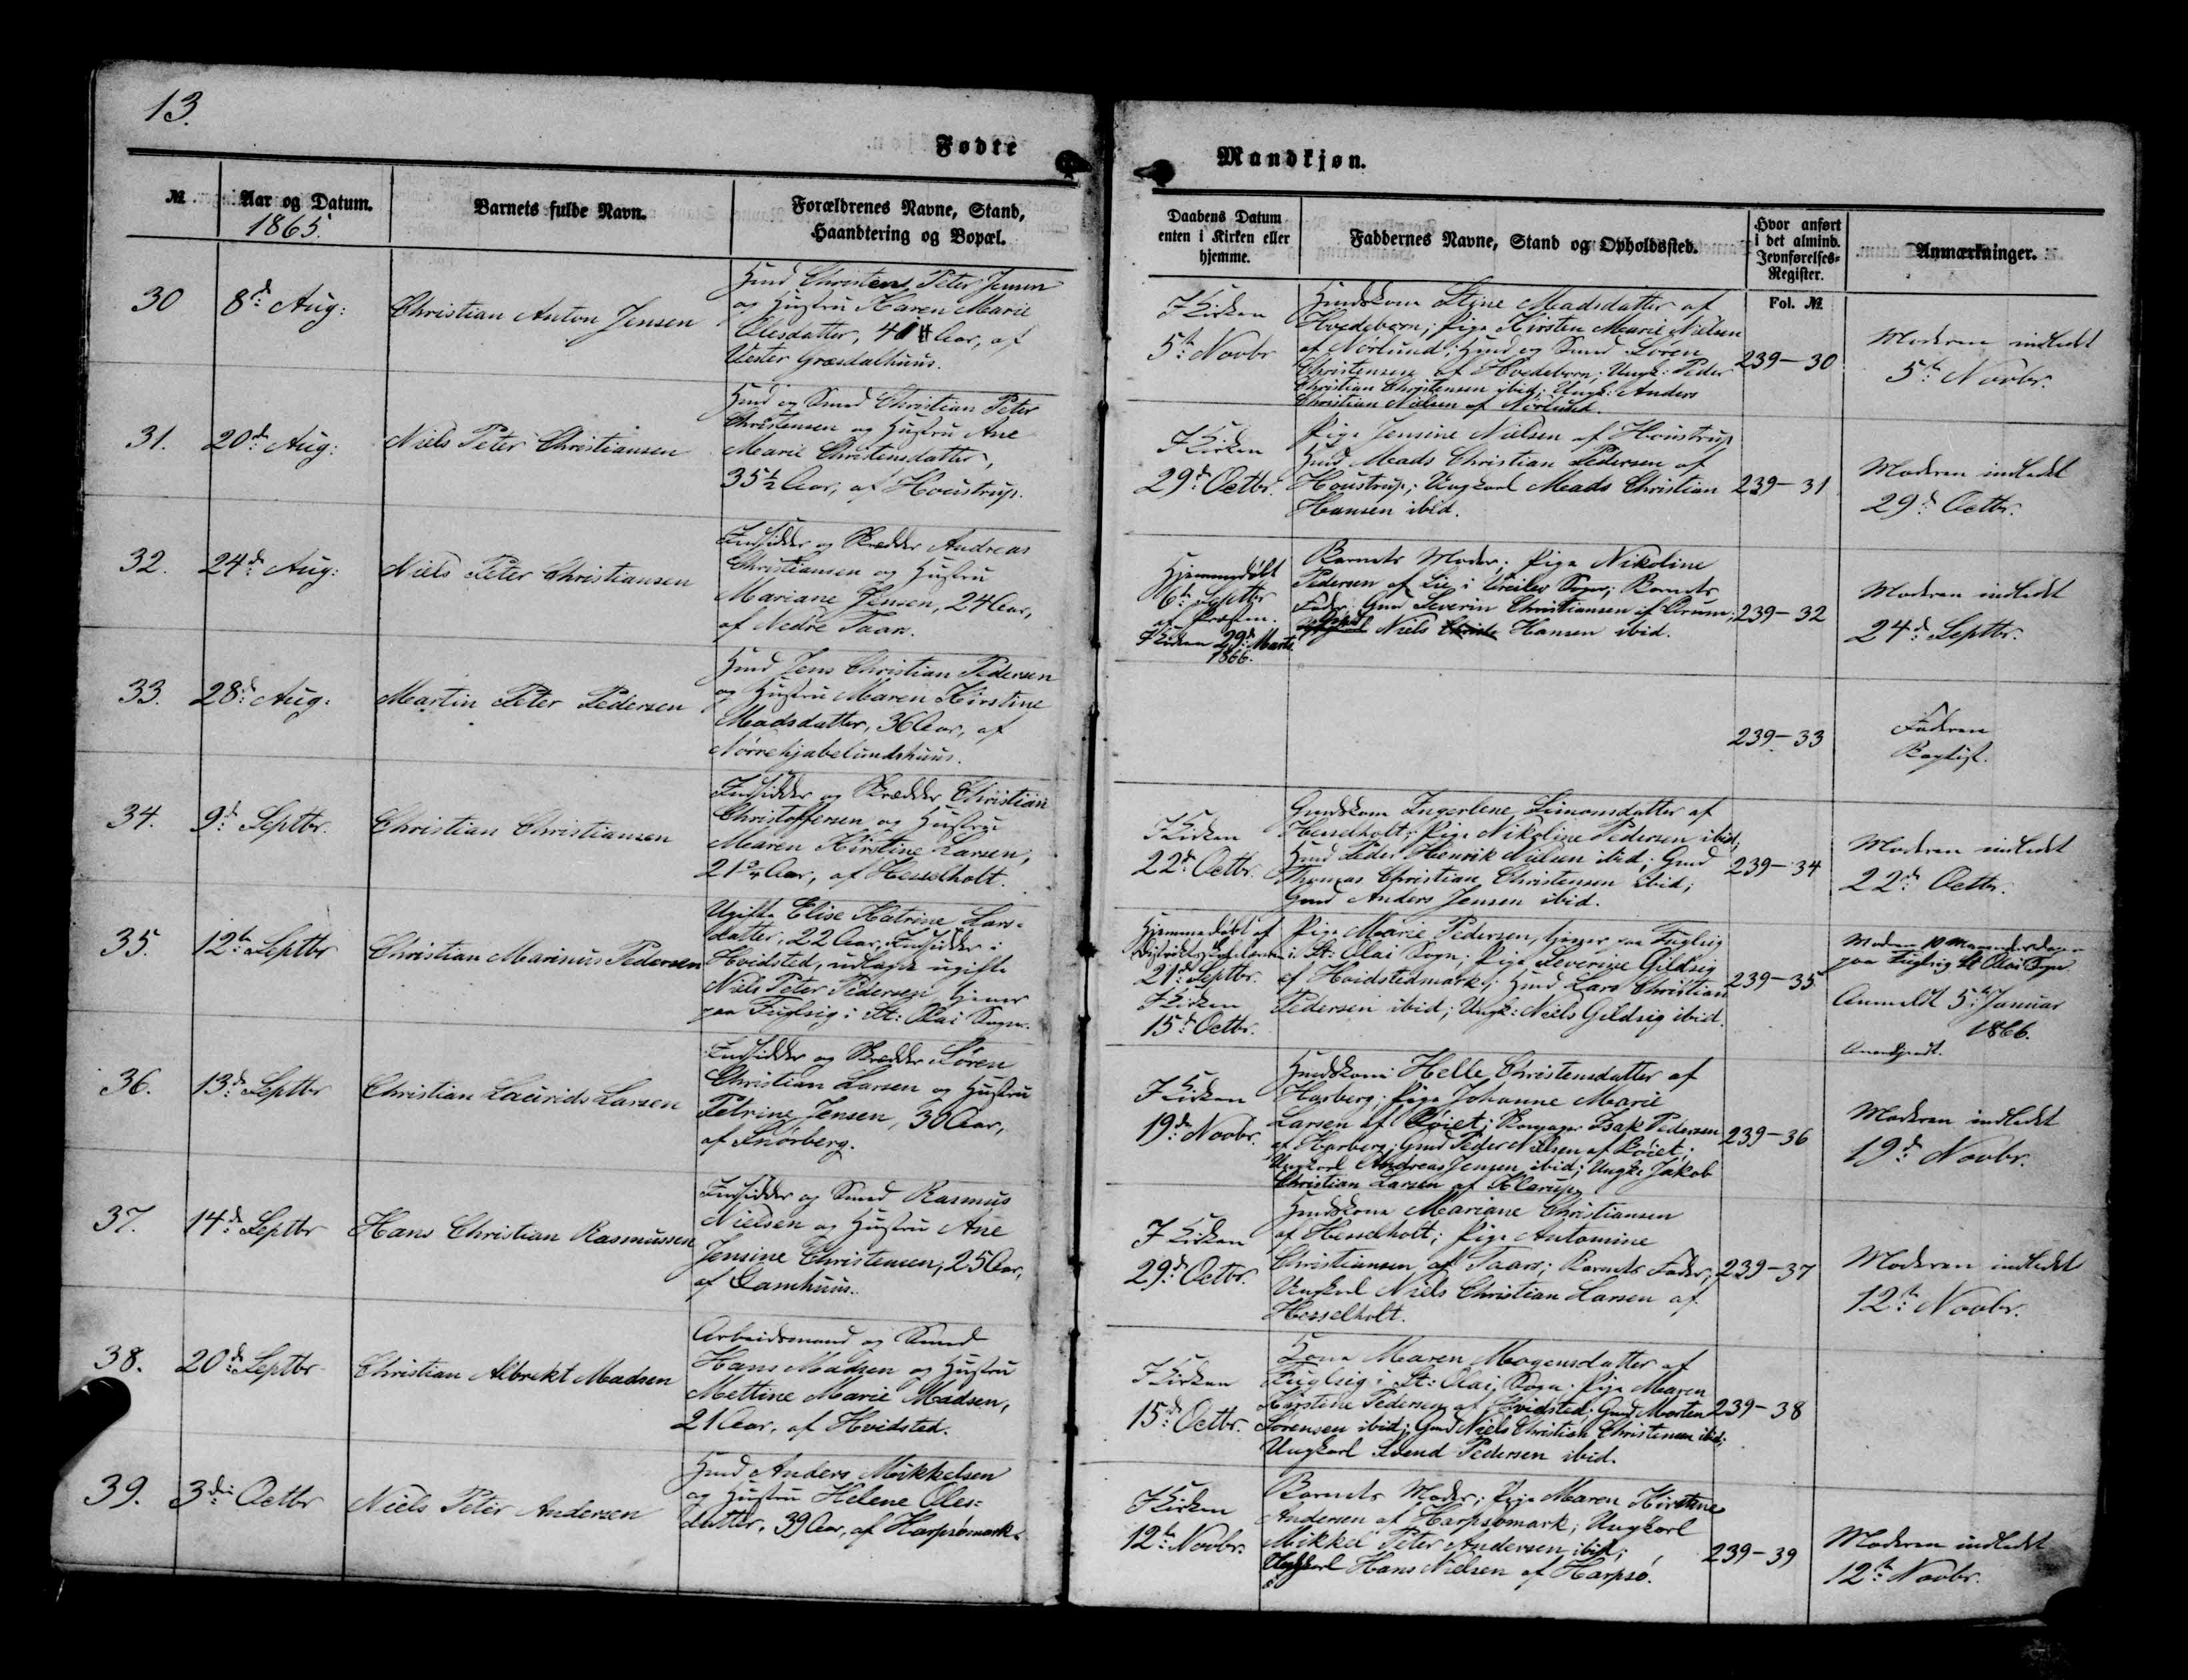 13.
Fødte
Mandkjøn.
№
Aar og Datum.
1865.
Barnets fulde Navn.
Forældrenes Navne, Stand,
Haandtering og Bopæl.
Daabens Datum
enten i Kirken eller
hjemme.
Faddernes Navne, Stand og Opholdssted.
Hvor anført
i det almind.
Jevnførelses-
Register.
Fol. №
Anmærkninger.
30
8d: Aug:
Christian Anton Jensen
Huusmd Christen Peter Jensen
og Hustru Karen Marie
Olesdatter, Aar, af
Vester Græsdalhuus.
I Kirken
5te: Novbr
Huusmdskone Stine Madsdatter af
Hvedeborn; Pige Kirsten Marie Nielsen
af Nørlund; Huusmd og Smed Søren
Christensen af Hvedeborn; Ungk: Peder
Christian Christensen ibid; Ungk: Anders
Christian Nielsen af Nørlund.
239-30
Moderen indledt
5te: Novbr.
31.
20de: Aug:
Niels Peter Christiansen
Huusmd og Smed Christian Peter
Christensen og Hustru Ane
Marie Christensdatter,
35½ Aar, af Houstrup.
I Kirken
29d: Octbr.
Pige Jensine Nielsen af Houstrup
Huusmd Mads Christian Pedersen af
Houstrup; Ungkarl Mads Christian
Hansen ibid.
239-31
Moderen indledt
29d: Octbr.
32.
24d: Aug:
Niels Peter Christiansen
Indsidder og Skrædder Andreas
Christiansen og Hustru
Mariane Jensen, 24 Aar,
af Nedre Taars.
Hjemmedøbt
6te: Septbr
af Præsten.
I Kirken 29d: Marts
1866.
Barnets Moder; Pige Nikoline
Pedersen af Lie i Ureilev Sogn; Barnets
Fader; Gmd Severin Christiansen af Ørum;
Niels Hansen ibid.
239-32
Moderen indledt
24d: Septbr.
33.
28d: Aug:
Martin Peter Pedersen
Huusmd Jens Christian Pedersen
og Hustru Maren Kirstine
Madsdatter, 36 Aar, af
Nørrehjabelundshuus.
239-33
Faderen
Baptist.
34.
9d: Septbr.
Christian Christiansen
Indsidder og Skrædder Christian
Christoffersen og Hustru
Maren Kirstine Larsen,
21¾ Aar, af Hesselholt.
I Kirken
22d: Octbr.
Gmdskone Ingerlene Simonsdatter af
Hesselholt; Pige Nikoline Pedersen ibid;
Huusmd Peder Henrik Nielsen ibid; Gmd
Thomas Christian Christensen ibid;
Gmd Anders Jensen ibid.
239-34
Moderen indledt
22d: Octbr.
35.
12te: Septbr
Christian Marinus Pedersen
Ugifte Elise Katrine Lars-
datter, 22 Aar, Indsidder i
Hvidsted, udlagde ugifte
Niels Peter Pedersen tjener
paa Fuglsig i St: Olai Sogn.
Hjemmedøbt af
21d: Septbr.
I Kirken
15d: Octbr.
Pige Marie Pedersen, tjener paa Fuglsig
i St: Olai Sogn; Pige Severine Gildsig
af Hvidstedmark; Huusmd Lars Christian
Pedersen ibid; Ungk: Niels Gildsig ibid.
239-35
Moderen 10 Maanedersdagen
paa Fuglsig St Olai Sogn
Anmeldt 5te: Januar
1866.
36.
13d: Septbr
Christian Laurids Larsen
Indsidder og Skrædder Søren
Christian Larsen og Hustru
Petrine Jensen, 30 Aar,
af Snørberg.
I Kirken
19de: Novbr.
Huusmdskone Helle Christensdatter af
Harberg; Pige Johanne Marie
Larsen af Røiet; Isak Pedersen
af Harberg; Gmd Peder Nielsen af Røiet;
Ungkarl Andreas Jensen ibid; Ungk: Jakob
Christian Larsen af Klarup.
239-36
Moderen indledt
19d: Novbr.
37.
14d: Septbr
Hans Christian Rasmussen
Indsidder og Smed Rasmus
Nielsen og Hustru Ane
Jensine Christensen, 25 Aar,
af Damhuus.
I Kirken
29d: Octbr.
Huusmdskone Mariane Christiansen
af Hesselholt; Pige Antomine
Christiansen af Taars; Barnets Fader;
Ungkarl Niels Christian Larsen af
Hesselholt.
239-37
Moderen indledt
12te: Novbr.
38.
20de: Septbr
Christian Albrekt Madsen
Arbeidsmand og Smed
Hans Madsen og Hustru
Mettine Marie Madsen,
21 Aar, af Hvidsted.
I Kirken
15d: Octbr.
Kone Maren Mogensdatter af
Fuglsig i St: Olai Sogn; Pige Maren
Kirstine Pedersen af Hvidsted; Gmd Morten
Sørensen ibid; Gmd Niels Christian Christensen ibid;
Ungkarl Svend Pedersen ibid.
239-38
39.
3die: Octbr
Niels Peter Andersen
Huusmd Anders Mikkelsen
og Hustru Helene Oles=
datter, 39 Aar, af Harpsømark.
I Kirken
12te: Novbr.
Barnets Moder; Pige Maren Kirstine
Andersen af Harpsomark; Ungkarl
Mikkel Peter Andersen ibid;
Ungkarl Hans Nielsen af Harpsø.
239-39
Moderen indledt
12te: Novbr.